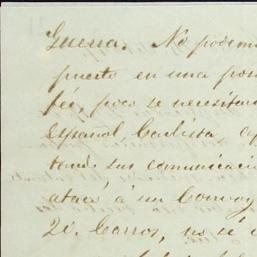 Guerra. No podemo
puesto en una pos
fée, pues se necesitan
español Carlista
tend. sus comunicacio
ataca á un Convoy
20. Carros, no sé